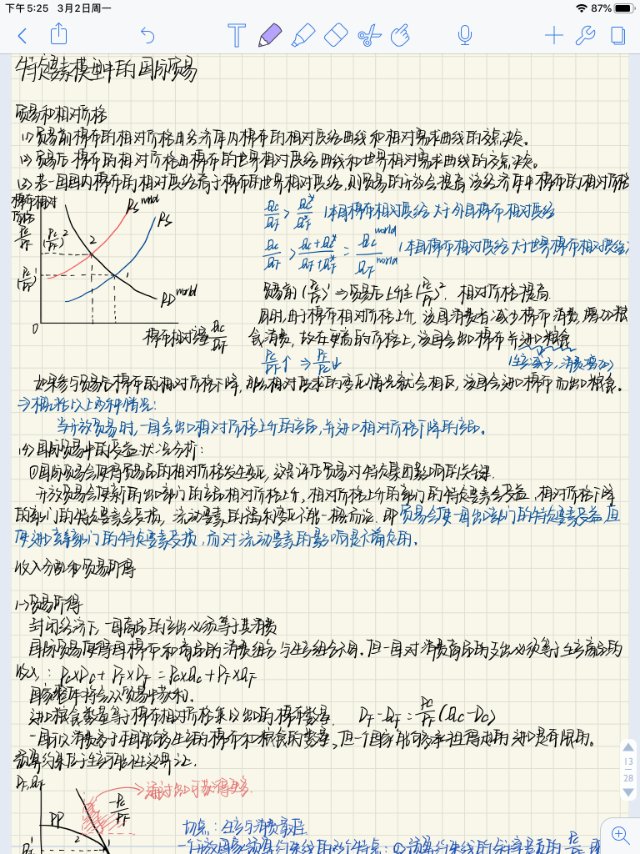 下午5:25 3月2日周一
87%
特定要素模型中的国际贸易
贸易和相对价格
(1) 贸易前棉布的相对价格由经济体内棉布的相对供给曲线和相对需求曲线的交点决定。
(2) 贸易后棉布的相对价格由棉布的世界相对供给曲线和世界相对需求曲线的交点决定。
(3) 若一国国内棉布的相对供给高于棉布的世界相对供给,则贸易的开放会提高该经济体中棉布的相对价格
棉布相对
价格
Pc/PF
(Pc/PF)²
(Pc/PF)¹
RS world
RS
2
1
RD world
0
棉布相对产量 Qc/QF
Qc/QF > Qc*/QF* (本国棉布相对供给大于外国棉布相对供给
Qc/QF > Qc+Qc*/QF+QF* = Qc world/QF world (本国棉布相对供给大于世界棉布相对供给
贸易前 (Pc/PF)¹ ⇒ 贸易后上升至 (Pc/PF)², 相对价格提高
同时,由于棉布相对价格上升,该国消费者减少棉布消费,增加粮
食消费,故在更高的相对价格上,该国会出口棉布并进口粮食
Pc/PF ↑ ⇒ PF/Pc ↓
如果参与贸易后棉布的相对价格下降,那么相对供求的变化情况就会相反,该国会进口棉布而出口粮食。
⇒ 概括以上两种情况:
当开放贸易时,一国会出口相对价格上升的产品,并进口相对价格下降的产品。
(4) 国际贸易中的受益状况分析:
①国际贸易会使得贸易品的相对价格发生变化,这是评估贸易对特定集团影响的关键.
开放贸易会使新的出口部门的产品相对价格上升,相对价格上升的部门的特定要素会受益,相对价格下降
的部门的特定要素会受损,流动要素的福利变化不能一概而论。即贸易会使一国出口部门的特定要素受益,但
使进口竞争部门的特定要素受损,而对流动要素的影响是不确定的。
收入分配和贸易所得
1、贸易所得
封闭经济下,一国商品的产出必须等于其消费
国际贸易使得国棉布和商品的消费组合与生产组合不同。但一国对消费商品的支出必须等于生产商品的
收入: Pc×Dc + PF×DF = Pc×Qc + PF×QF
国家整体将会从贸易中获利.
进口粮食数量等于棉布相对价格乘以出口的棉布数量. DF−QF = Pc/PF (Qc−Dc)
一国可以消费多于本国能够生产的棉布和粮食的数量,但一个国家能够承担得起的进口是有限的。
预算约束与生产可能性边界之上.
DF, QF
PP
−Pc/PF
通过出口可获得更多
2
1
QF¹
切点: 生产与消费最佳
13
28